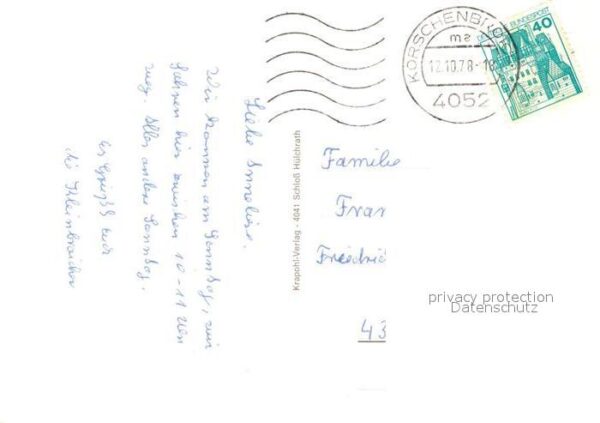 Liebe Anneliese.
Wir kommen am Sonntag, wir
fahren hier zwischen 10-11 Uhr
weg. Alles andere Sonntag.
Es grüßt euch
die Kleinbroicher
Krapohl-Verlag - 4041 Schloß Hülchrath
KORSCHENBROICH
ma
12.10.78-18
4052
DEUTSCHE BUNDESPOST
40
Familie
Fran
Friedric
43
privacy protection
Datenschutz